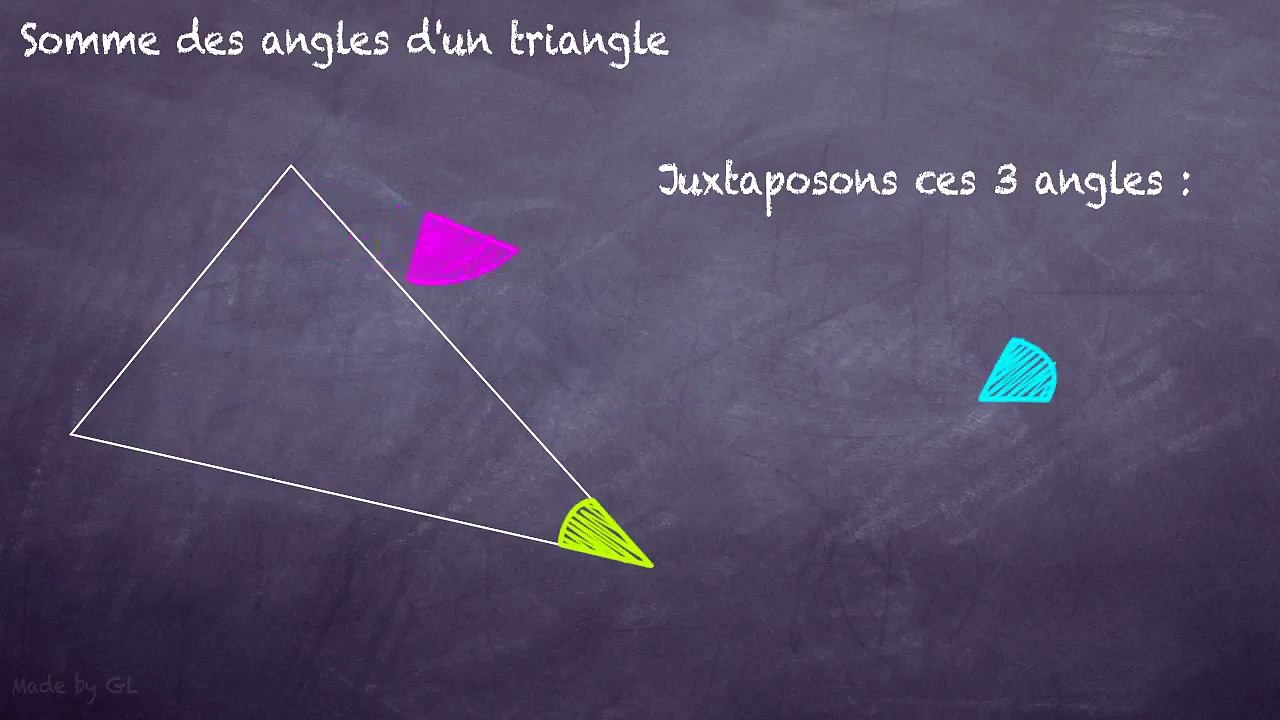 Somme des angles d'un triangle
Juxtaposons ces 3 angles :
Made by GL